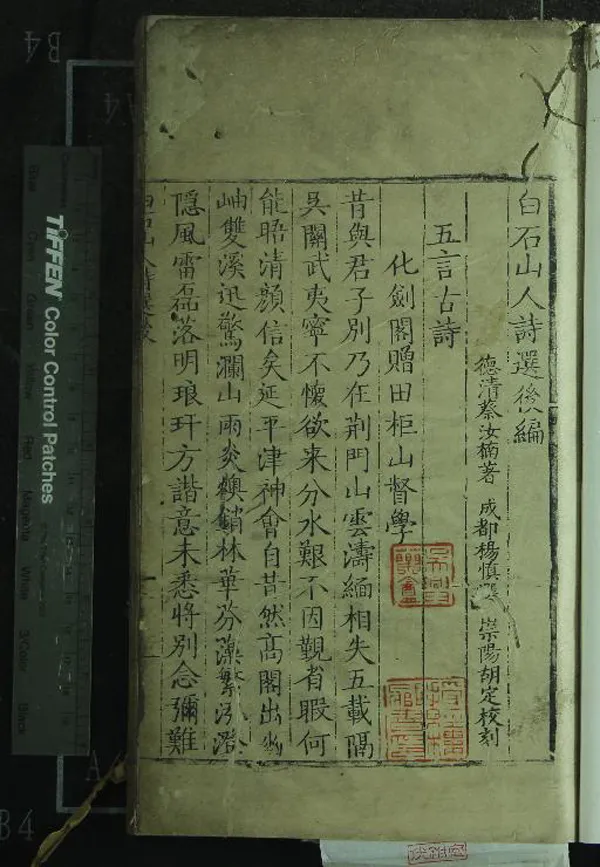 白石山人詩選後編
德清蔡汝楠著 成都楊慎選 崇陽胡定校刻
五言古詩
化劍閣贈田柜山督學
昔與君子別乃在荆門山雲濤緬相失五載隔
吳關武夷寧不懷欲来分水艱不因觀省暇何
能晤清顔信矣延平津神會自昔然高閣出幽
岫雙溪迅驚瀾山雨炎燠銷林華芬藻繁
隱風雷磊落明琅玕方諧意未悉將别念彌難
TIFFEN Color Control Patches
Blue
Red
Magenta
White
3/Color
Black
B4
A4
B4